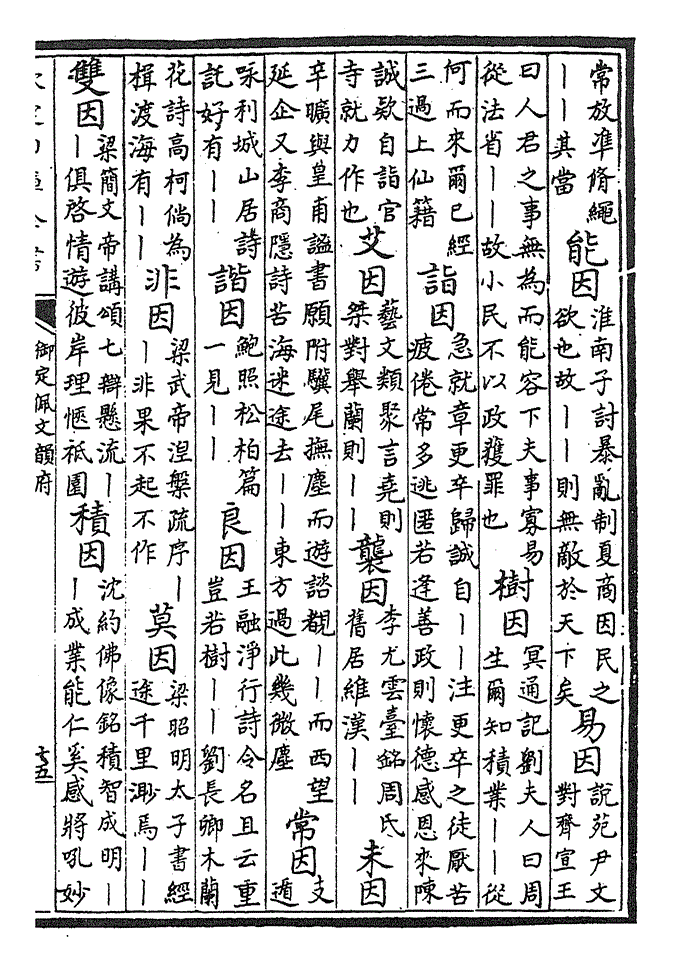 常放準脩繩
——其當
能因
淮南子討暴亂制夏商因民之
欲也故——則無敵於天下矣
易因
說苑尹文
對齊宣王
曰人君之事無為而能容下夫事寡易
從法省——故小民不以政獲罪也
樹因
冥通記劉夫人曰周
生爾知積業——從
何而來爾已經
三過上仙籍
詣因
急就章更卒歸誠自——注更卒之徒厭苦
疲倦常多逃匿若逢善政則懷德感恩來陳
誠欵自詣官
寺就力作也
艾因
藝文類聚言堯則
桀對舉蘭則——
襲因
李尤雲臺銘周氏
舊居維漢——
未因
辛曠與皇甫謐書願附驥尾撫塵而遊諮覩——而西望
延企又李商隱詩苦海迷途去——東方過此幾微塵
常因
支
遁
咏利城山居詩
託好有——
諧因
鮑照松柏篇
一見——
良因
王融淨行詩令名且云重
豈若樹——劉長卿木蘭
花詩高柯倘為
楫渡海有——
非因
梁武帝涅槃疏序—
—非果不起不作
莫因
梁昭明太子書經
途千里渺焉——
雙因
梁簡文帝講頌七辯懸流—
—俱啓情遊彼岸理愜祗園
積因
沈約佛像銘積智成明—
—成業能仁奚感將吼妙
御定佩文韻府